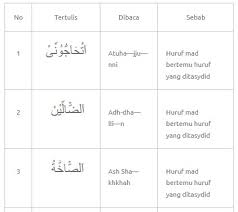 No Tertulis Dibaca Sebab
1 اَتُحَاجُّوْنِّىْ Atuha—jju— Huruf mad
nni bertemu huruf
yang ditasydid
2 الضَّالِّيْنَ Adh-dha— Huruf mad
lli—n bertemu huruf
yang ditasydid
3 الصَّاخَّةُ Ash Sha— Huruf mad
khkhah bertemu huruf
yang ditasydid